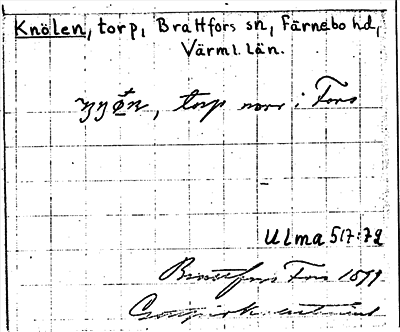 Knölen, torp, Brattfors sn, Färnebo hd,
Värml. län.
torp norr i Fors
Ulma 517:72
Brattfors Fors 1899